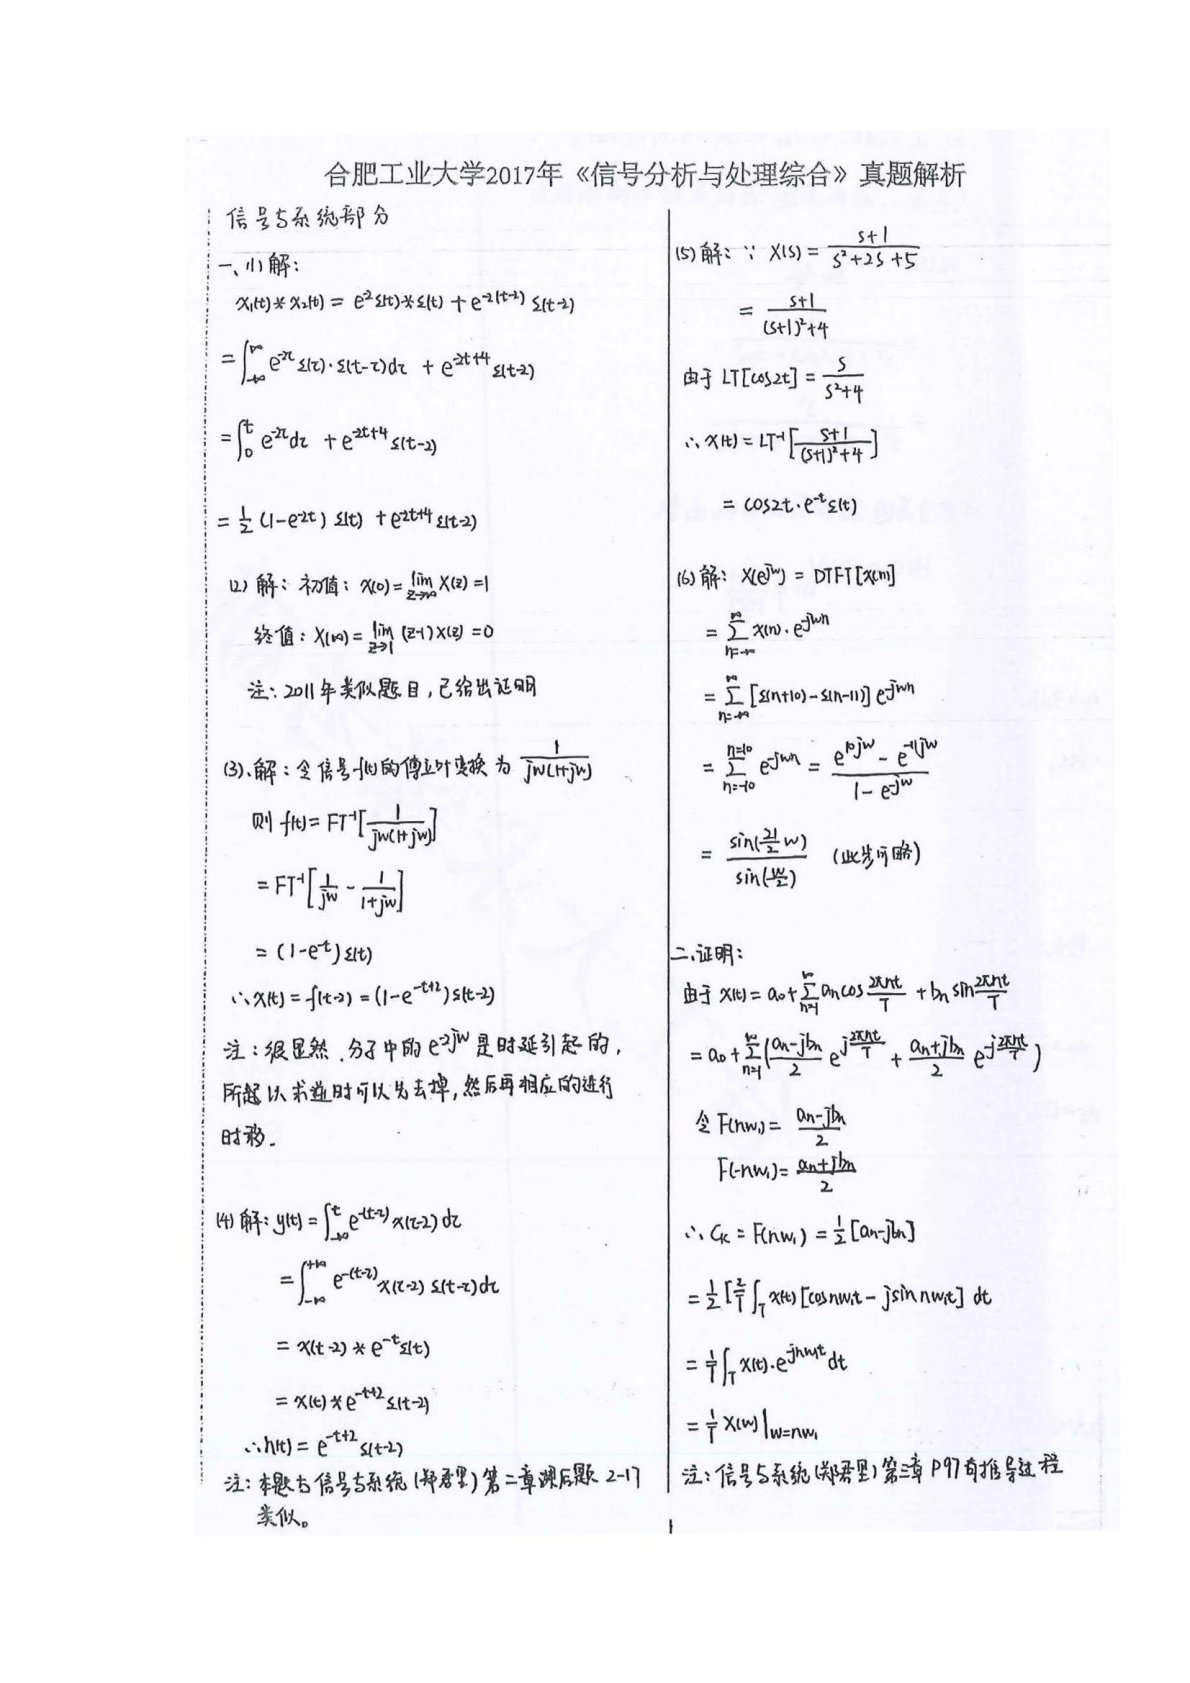 合肥工业大学2017年《信号分析与处理综合》真题解析
信号与系统部分
一、(1)解:
x₁(t)*x₂(t) = e² ε(t)*ε(t) + e^{-2(t-2)} ε(t-2)
= ∫_{-∞}^{∞} e^{-2τ} ε(τ)·ε(t-τ)dτ + e^{-2t+4} ε(t-2)
= ∫_0^t e^{-2τ}dτ + e^{-2t+4} ε(t-2)
= 1/2 (1-e^{-2t}) ε(t) + e^{-2t+4} ε(t-2)
(2) 解: 初值: x(0)= lim_{z→∞} X(z) =1
终值: X(∞)= lim_{z→1} (z-1)X(z) =0
注: 2011年类似题目,已给出证明
(3).解: 令信号f(t)的傅立叶变换为 1/(jw(1+jw))
则 f(t)= FT⁻¹[1/(jw(1+jw))]
= FT⁻¹[1/jw - 1/(1+jw)]
= (1-e^{-t}) ε(t)
∴x(t) = f(t-2) = (1-e^{-t+2}) ε(t-2)
注:很显然,分子中的 e^{-2jw} 是时延引起的,
所以求逆时可以先去掉,然后再相应的进行
时移.
(4) 解: y(t) = ∫_{-∞}^t e^{-(t-τ)} x(τ-2) dτ
= ∫_{-∞}^{+∞} e^{-(t-τ)} x(τ-2) ε(t-τ)dτ
= x(t-2) * e^{-t}ε(t)
= x(t)*e^{-t+2} ε(t-2)
∴h(t) = e^{-t+2} ε(t-2)
注: 本题与信号与系统(郑君里)第二章课后题 2-17
类似。
(5) 解: ∵ X(s) = (s+1)/(s²+2s+5)
= (s+1)/((s+1)²+4)
由于 LT[cos2t] = s/(s²+4)
∴x(t) = LT⁻¹[(s+1)/((s+1)²+4)]
= cos2t·e^{-t}ε(t)
(6) 解: X(e^{jw}) = DTFT[x(n)]
= Σ_{n=-∞}^{∞} x(n)·e^{-jwn}
= Σ_{n=-∞}^{∞} [ε(n+10)-ε(n-11)] e^{-jwn}
= Σ_{n=-10}^{n=10} e^{-jwn} = (e^{10jw} - e^{-11jw})/(1-e^{-jw})
= sin(21/2 w)/sin(w/2) (此步可略)
二.证明:
由于 x(t) = a₀+Σ_{n=1}^{∞} aₙcos 2πnt/T + bₙ sin 2πnt/T
= a₀+Σ_{n=1}^{∞}((aₙ-jbₙ)/2 e^{j2πnt/T} + (aₙ+jbₙ)/2 e^{-j2πnt/T})
令 F(nw₁) = (aₙ-jbₙ)/2
F(-nw₁) = (aₙ+jbₙ)/2
∴ Cₖ = F(nw₁) = 1/2 [aₙ-jbₙ]
= 1/2 [2/T ∫_T x(t) [cosnw₁t - jsin nw₁t] dt
= 1/T ∫_T x(t)·e^{-jnw₁t} dt
= 1/T X(w)|_{w=nw₁}
注: 信号与系统(郑君里)第三章 P97有推导过程